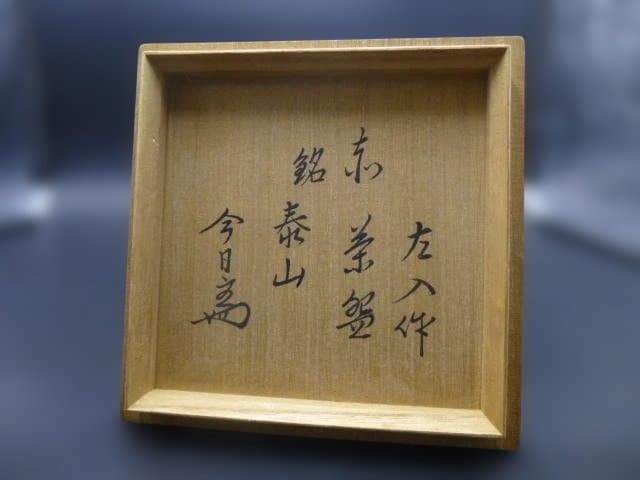 左入作
赤茶碗
銘 泰山
今日斎